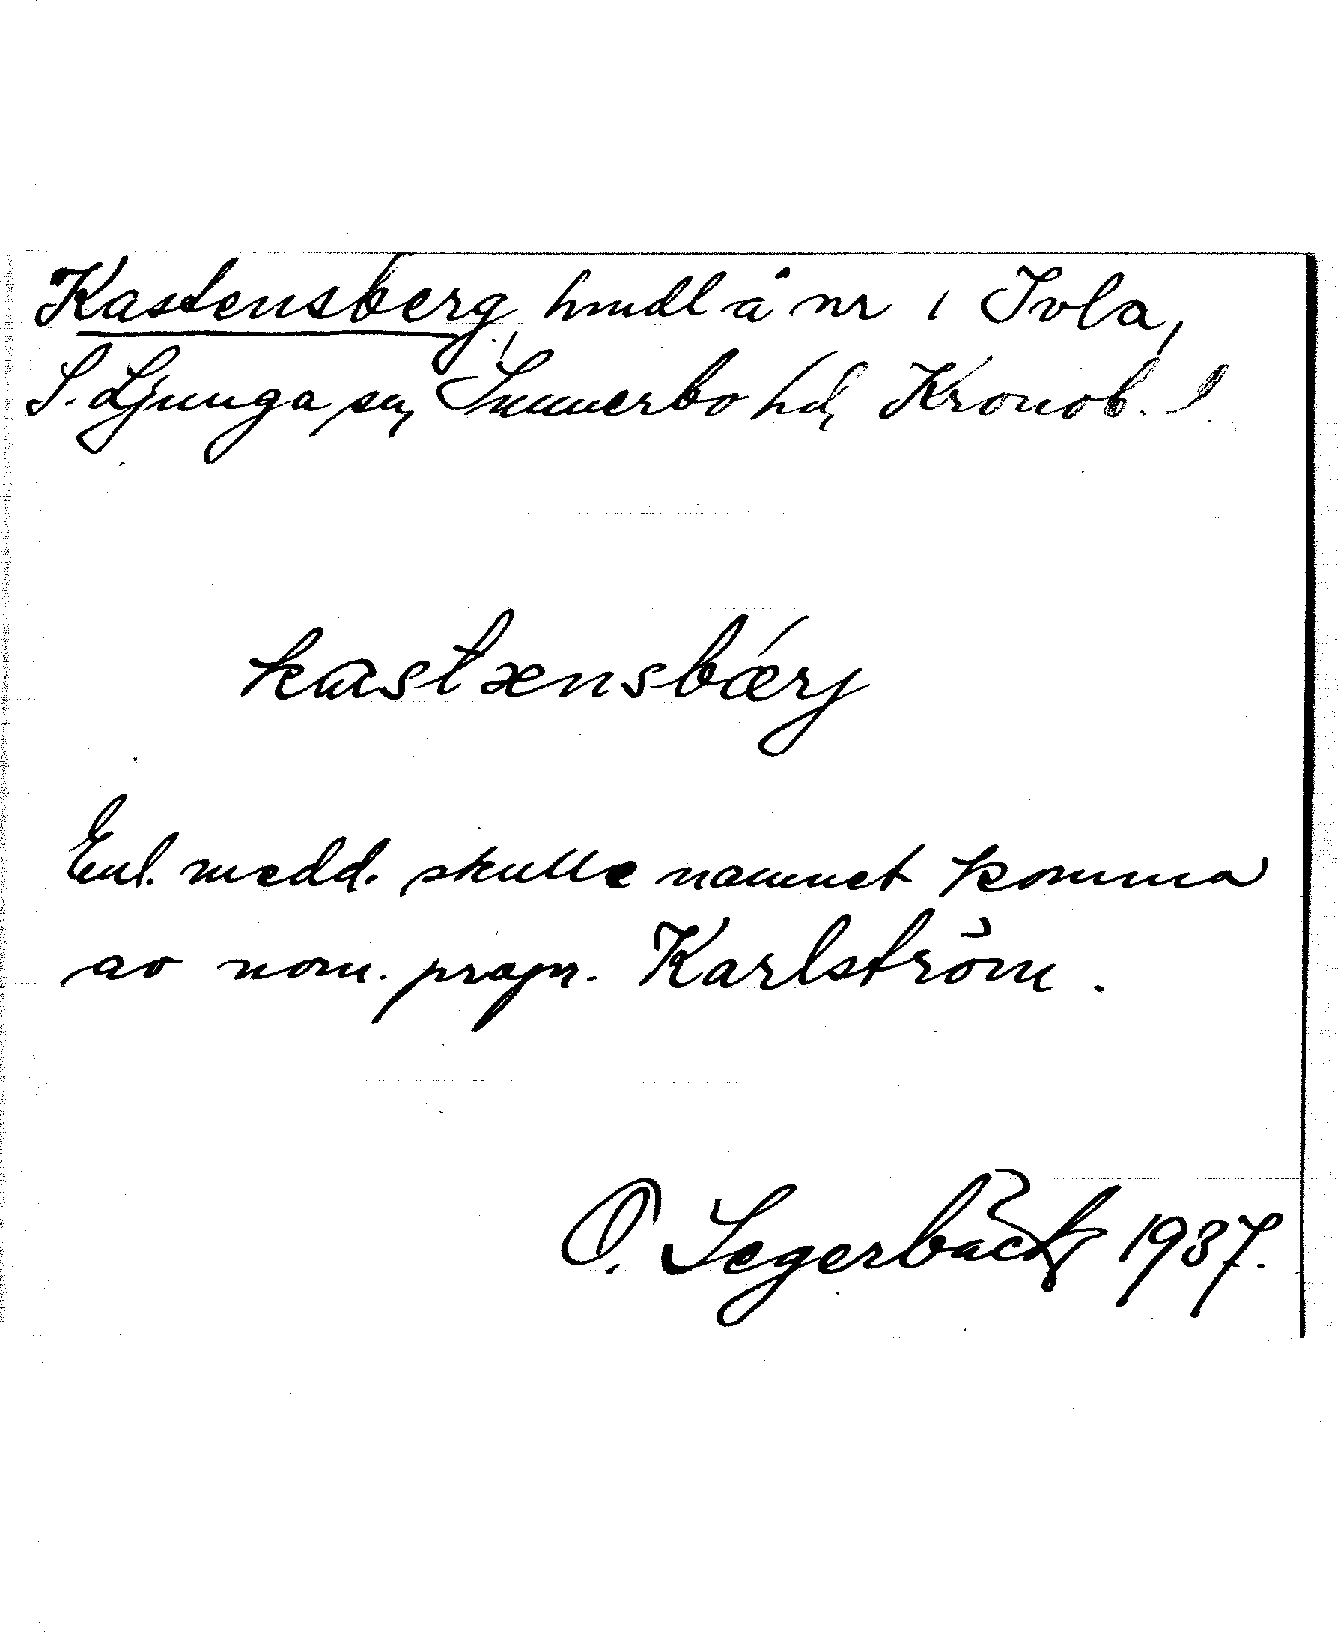 Kastensberg, hmdl å nr 1 Ivla,
S. Ljunga sn, Sunnerbo hd, Kronob. l.
kastənsbærj
Enl. medd. skulle namnet komma
av nom. propr. Karlström.
O. Segerbäck 1937.